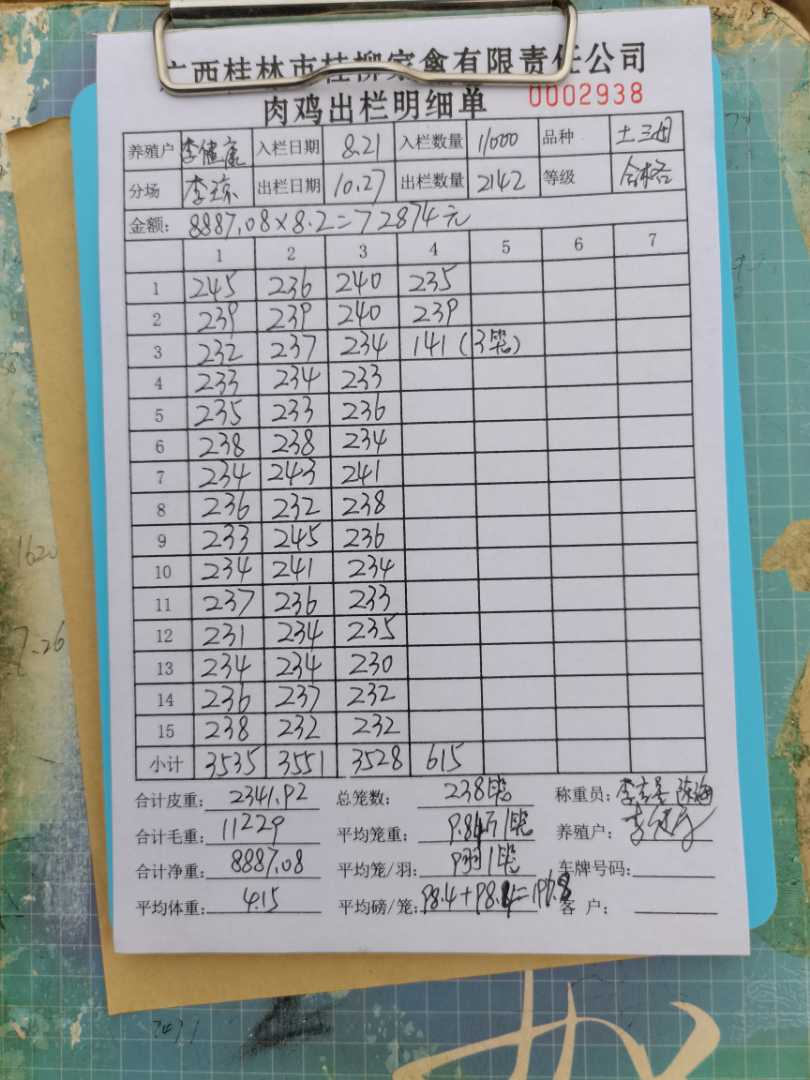 广西桂林市桂柳家禽有限责任公司
肉鸡出栏明细单 0002938
养殖户 李健 入栏日期 8.21 入栏数量 11000 品种 土三
分场 李琼 出栏日期 10.27 出栏数量 2142 等级 合格
金额: 8887.08×8.2=72874元
1 2 3 4 5 6 7
1 245 236 240 235
2 239 239 240 239
3 232 237 234 141(3笼)
4 233 234 233
5 235 233 236
6 238 238 234
7 234 243 241
8 236 232 238
9 233 245 236
10 234 241 234
11 237 236 233
12 231 234 235
13 234 234 230
14 236 237 232
15 238 232 232
小计 3535 3551 3528 615
合计皮重: 2341.92 总笼数: 238笼 称重员: 李
合计毛重: 11229 平均笼重: 9.84斤/笼 养殖户: 李
合计净重: 8887.08 平均笼/羽: 9羽/笼 车牌号码:
平均体重: 4.15 平均磅/笼: 98.4+98.4=196.8 客户:
1620
7.26